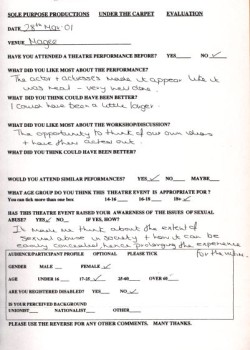 SOLE PURPOSE PRODUCTIONS UNDER THE CARPET EVALUATION
DATE 28th Mar 01
VENUE Magee
HAVE YOU ATTENDED A THEATRE PERFORMANCE BEFORE? YES NO ✓
WHAT DID YOU LIKE MOST ABOUT THE PERFORMANCE?
The actor + actresses made it appear like it
was real - very well done.
WHAT DID YOU THINK COULD HAVE BEEN BETTER?
I could have been a little longer.
WHAT DID YOU LIKE MOST ABOUT THE WORKSHOP/DISCUSSION?
The opportunity to think of our own ideas
+ have them acted out.
WHAT DID YOU THINK COULD HAVE BEEN BETTER?
WOULD YOU ATTEND SIMILAR PERFORMANCES? YES ✓ NO MAYBE
WHAT AGE GROUP DO YOU THINK THIS THEATRE EVENT IS APPROPRIATE FOR?
You can tick more than one box 14-16 16-18 18+ ✓
HAS THIS THEATRE EVENT RAISED YOUR AWARENESS OF THE ISSUES OF SEXUAL
ABUSE? YES ✓ NO IF YES, HOW?
It made me think about the extent of
sexual abuse in society + how it can be
easily concealed hence prolonging the experience
for the victim.
AUDIENCE/PARTICIPANT PROFILE OPTIONAL PLEASE TICK
GENDER MALE FEMALE ✓
AGE UNDER 16 17-25 ✓ 25-60 OVER 60
ARE YOU REGISTERED DISABLED? YES NO ✓
IS YOUR PERCEIVED BACKGROUND
UNIONIST NATIONALIST OTHER
PLEASE USE THE REVERSE FOR ANY OTHER COMMENTS. MANY THANKS.